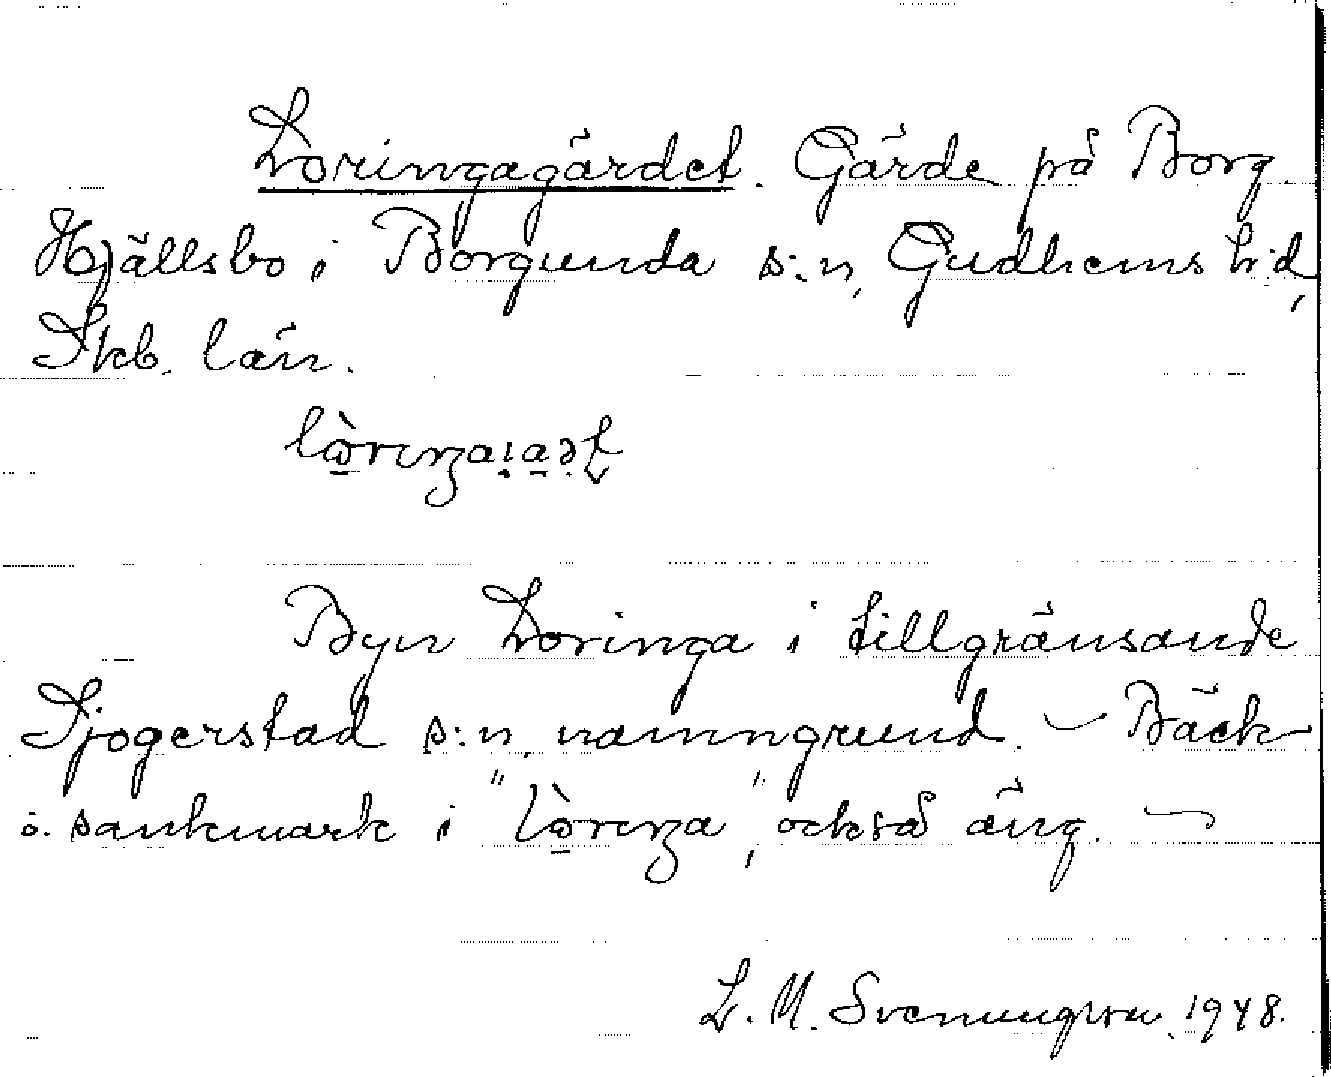 Loringagärdet. Gärde på Borg
Hjällsbo i Borgunda s:n, Gudhems h:d,
Skb. län.
Byn Loringa i tillgränsande
Sjogerstad s:n namngrund. – Bäck
o. sankmark i "lòrꞮŋa", också äng. –
L. M. Svenungsson 1948.